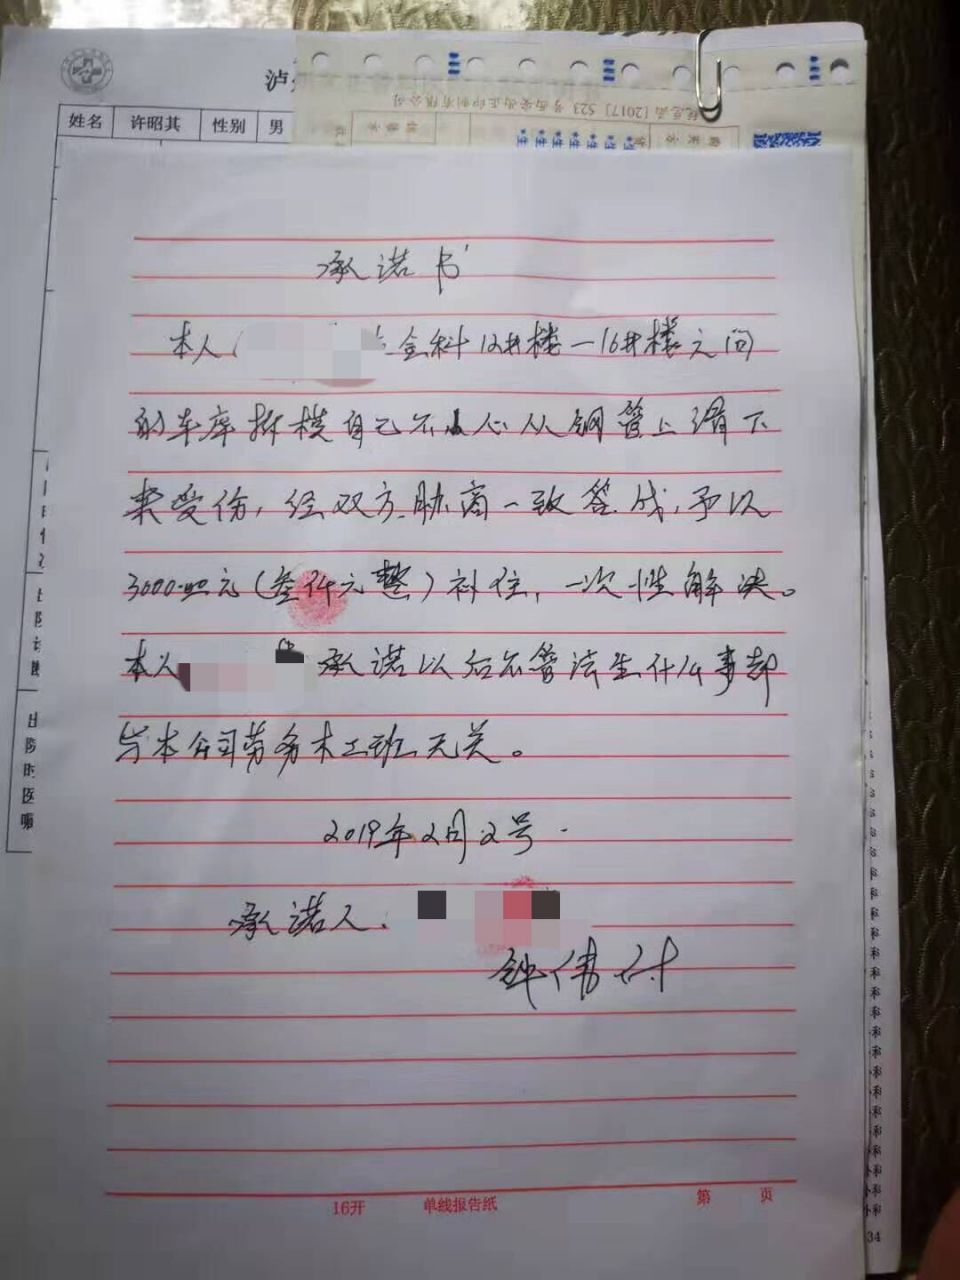 泸
姓名 许昭其 性别 男
税总函 [2017] 523 号西安西正印制有限公司
承诺书
本人 金科12#楼一16#楼之间
的车库拆模自己不小心从钢管上滑下
来受伤，经双方协商一致答成，予以
3000.00元（叁仟元整）补住，一次性解决。
本人 承诺以后不管法生什么事却
与本公司劳务木工班无关。
2019年2月2号.
承诺人.
钟伟付
16开 单线报告纸 第 页
34